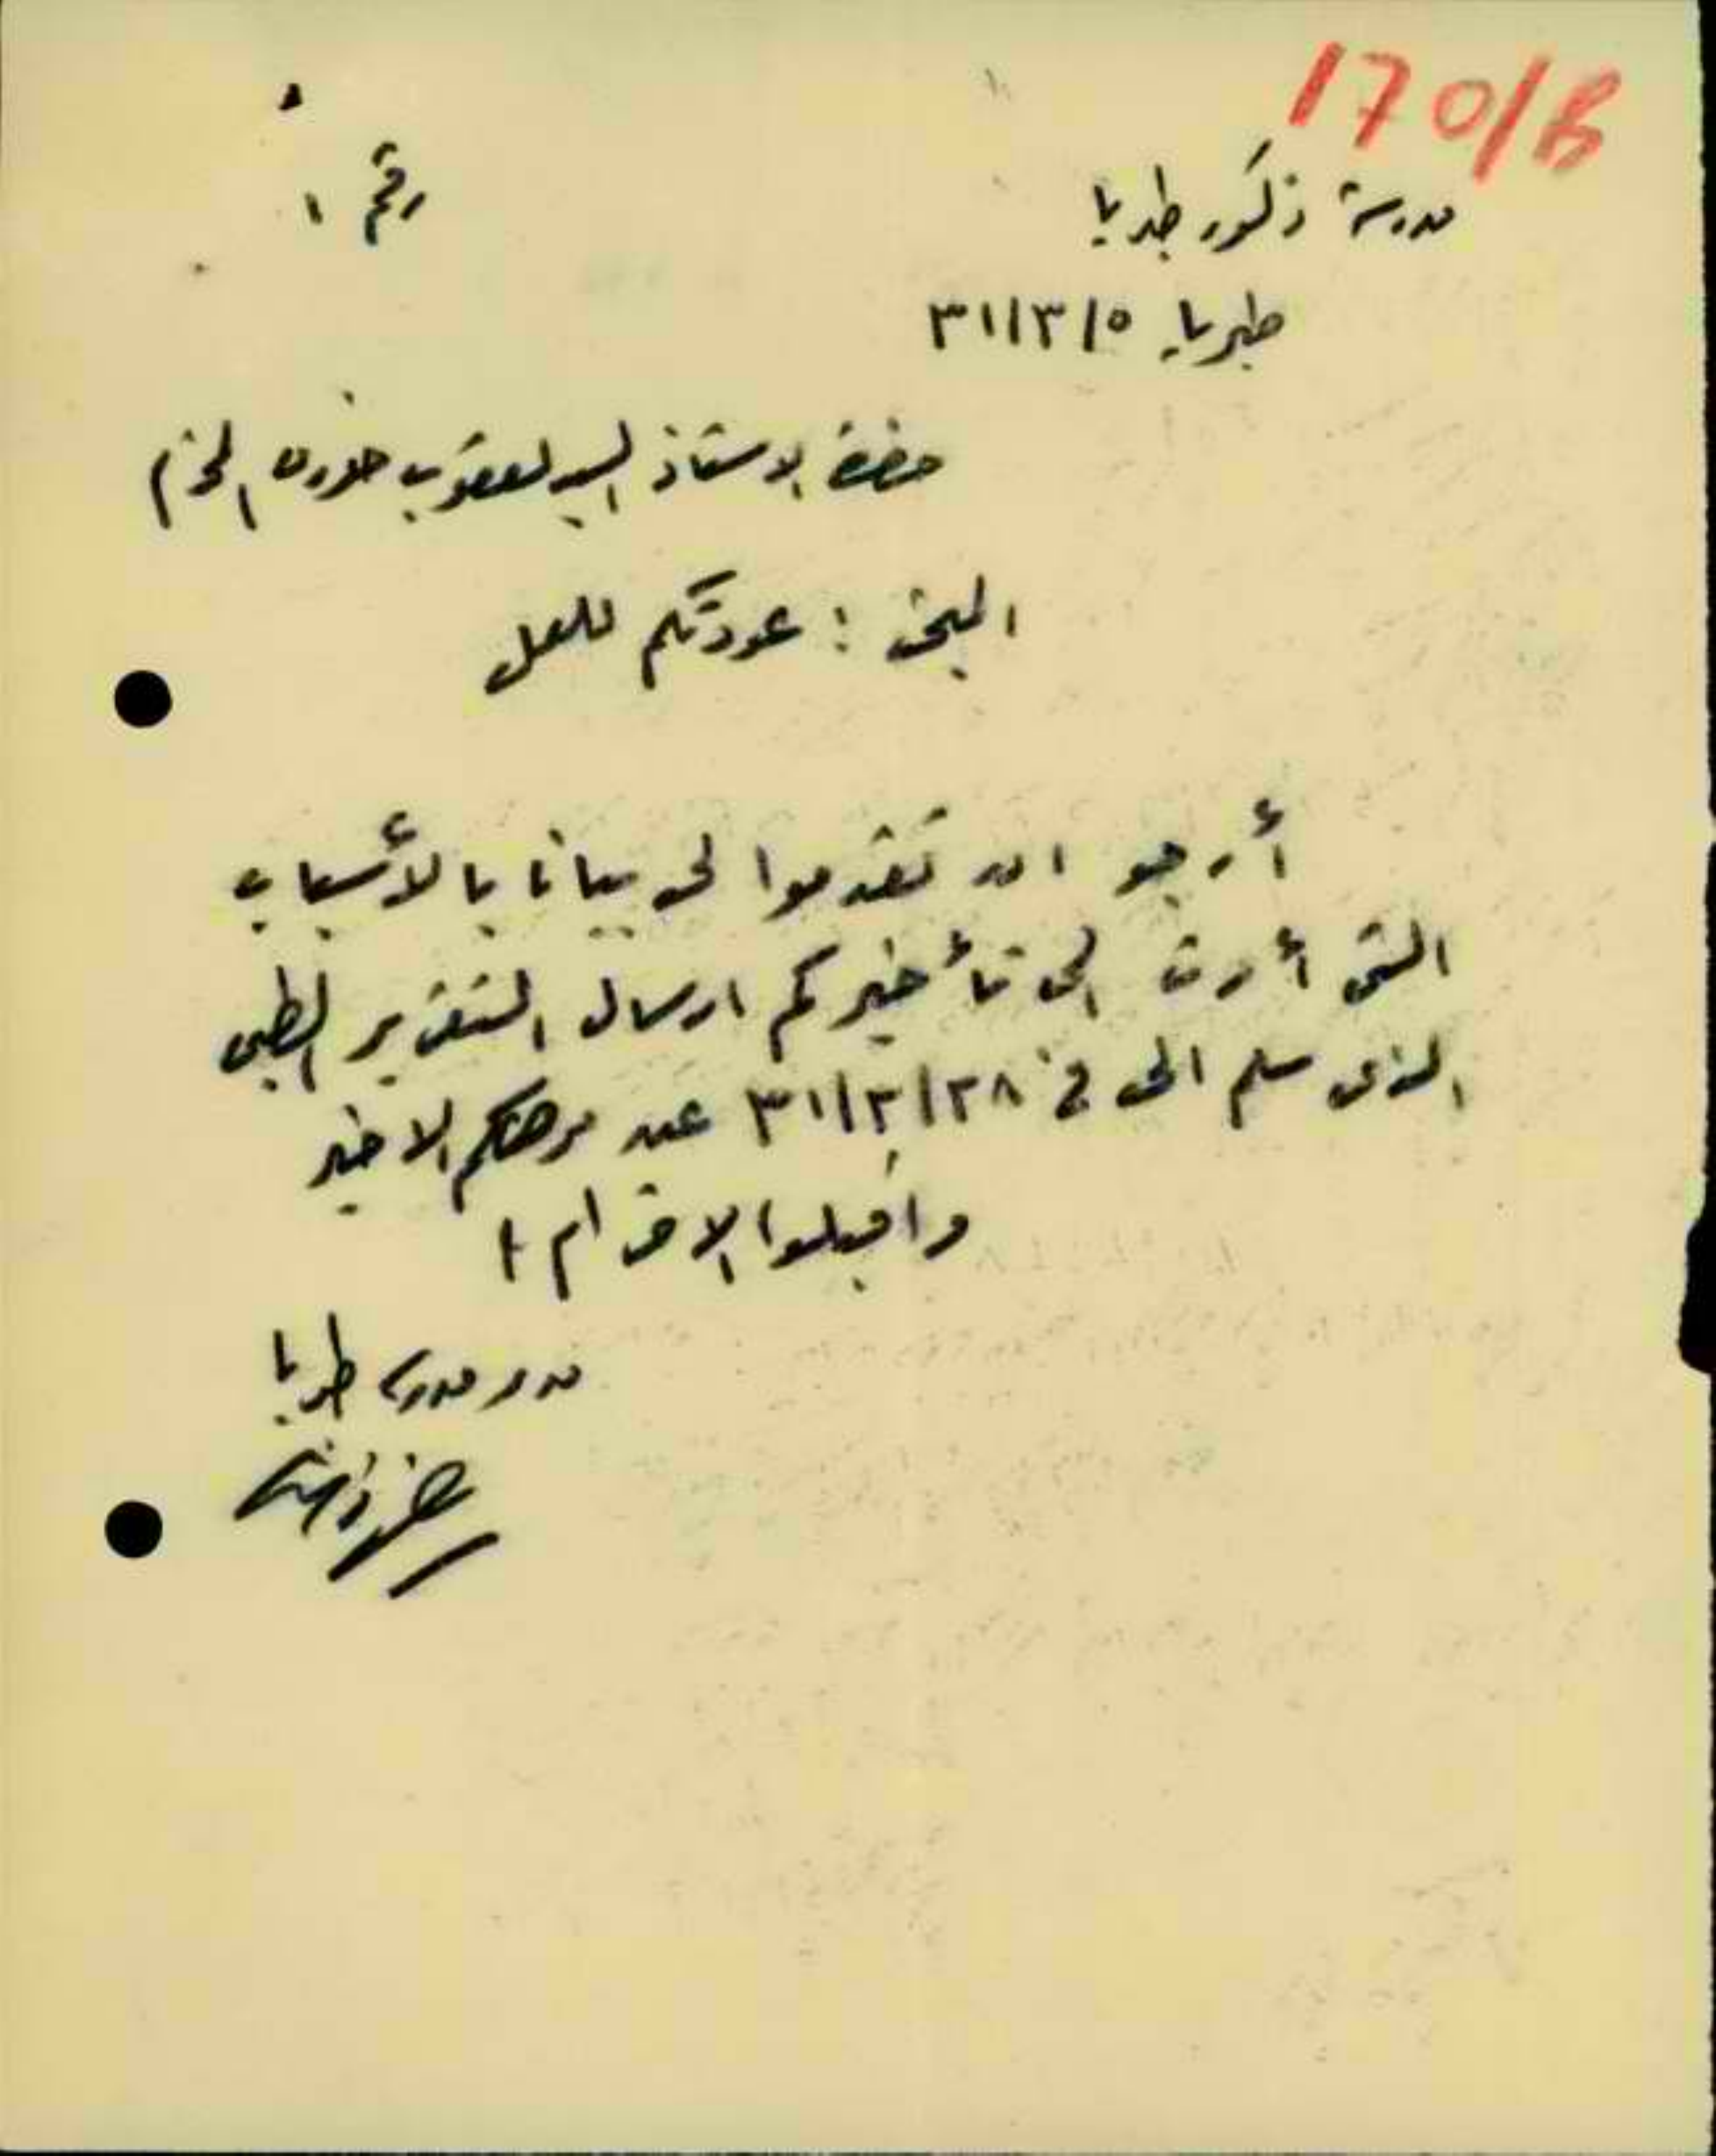 170/B
مدرسة ذكور طبريا
رقم ١
طبريا ٣١/٣/٥
حضرة الاستاذ السيد يعقوب المحترم
البحث : عودتكم للعمل
أرجو ان تقدموا لى بيانا بالأسباب
التى أدت الى تأخيركم ارسال التقرير الطبى
الذى سلم الى في ٣١/٢/٢٨ عن مرضكم الاخير
واقبلوا الاحترام
مدير مدرسة طبريا